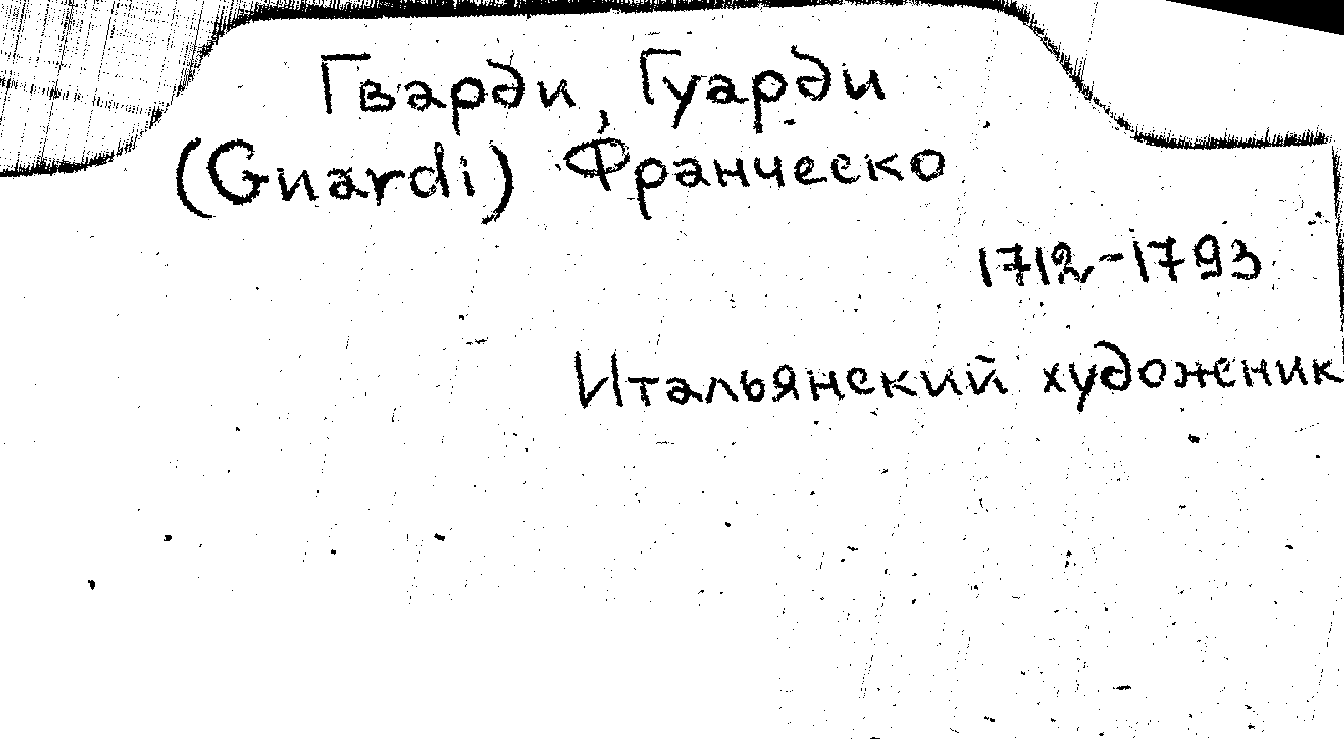 Гварди, Гуарди
(Guardi) Франческо
1712-1793
Итальянский художник